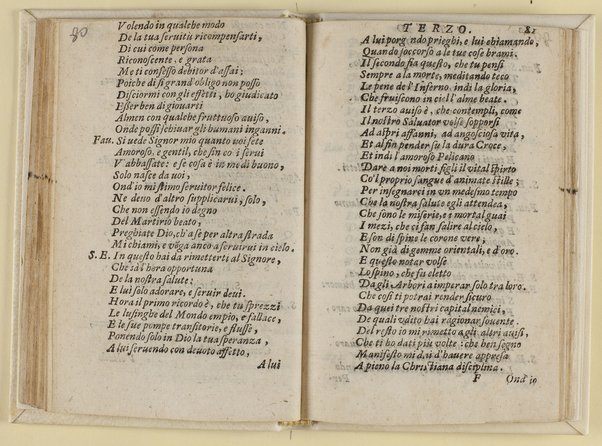 80
Volendo in qualche modo
De la tua seruitù ricompensarti,
Di cui come persona
Riconoscente, e grata
Me ti confesso debitor d'assai;
Poiche di sì grand'obligo non posso
Disciormi con gli effetti, hò giudicato
Esser ben di giouarti
Almen con qualche fruttuoso auiso,
Onde possi schiuar gli humani inganni.
Fau. Si vede Signor mio quanto voi sete
Amoroso, e gentil, che sin co i serui
V'abbassate: e se cosa è in me di buono,
Solo nasce da voi,
Ond'io mi stimo seruitor felice.
Ne deuo d'altro supplicarui, solo,
Che non essendo io degno
Del Martirio beato,
Preghiate Dio, ch'a sè per altra strada
Mi chiami, e venga anco a seruirui in cielo.
S. E. In questo hai da rimetterti al Signore,
Che sà l'hora opportuna
De la nostra salute:
E lui solo adorare, e seruir deui.
Hora il primo ricordo è, che tu sprezzi
Le lusinghe del Mondo empio, e fallace,
E le sue pompe transitorie, e flusse,
Ponendo solo in Dio la tua speranza,
A lui seruendo con deuoto affetto,
A lui
TERZO. 81
A lui porgendo prieghi, e lui chiamando,
Quando soccorso a le tue cose brami.
Il secondo sia questo, che tu pensi
Sempre a la morte, meditando teco
Le pene de l'Inferno, indi la gloria,
Che fruiscono in ciel l'alme beate.
Il terzo auiso è, che contempli, come
Il nostro Saluator volse sopporsi
Ad aspri affanni, ad angosciosa vita,
Et al fin pender su la dura Croce,
Et indi l'amoroso Pelicano
Dare a noi morti figli il vital spirto
Co'l proprio sangue d'animate stille;
Per insegnarci in vn medesmo tempo
Che la nostra salute egli attendea,
Che sono le miserie, e i mortal guai
I mezi, che ci fan salire al cielo,
E son di spine le corone vere,
Non già di gemme orientali, e d'oro.
E questo notar volse
Lo spino, che fu eletto
Dagli Arbori a imperar solo tra loro.
Che così ti potrai render sicuro
Da quei tre nostri capital nemici,
De quali vdito hai ragionar souente.
Del resto io mi rimetto a gli altri auisi,
Che ti ho dati più volte: che ben segno
Manifesto mi dai d'hauere appresa
A pieno la Christiana disciplina.
F Ond'io